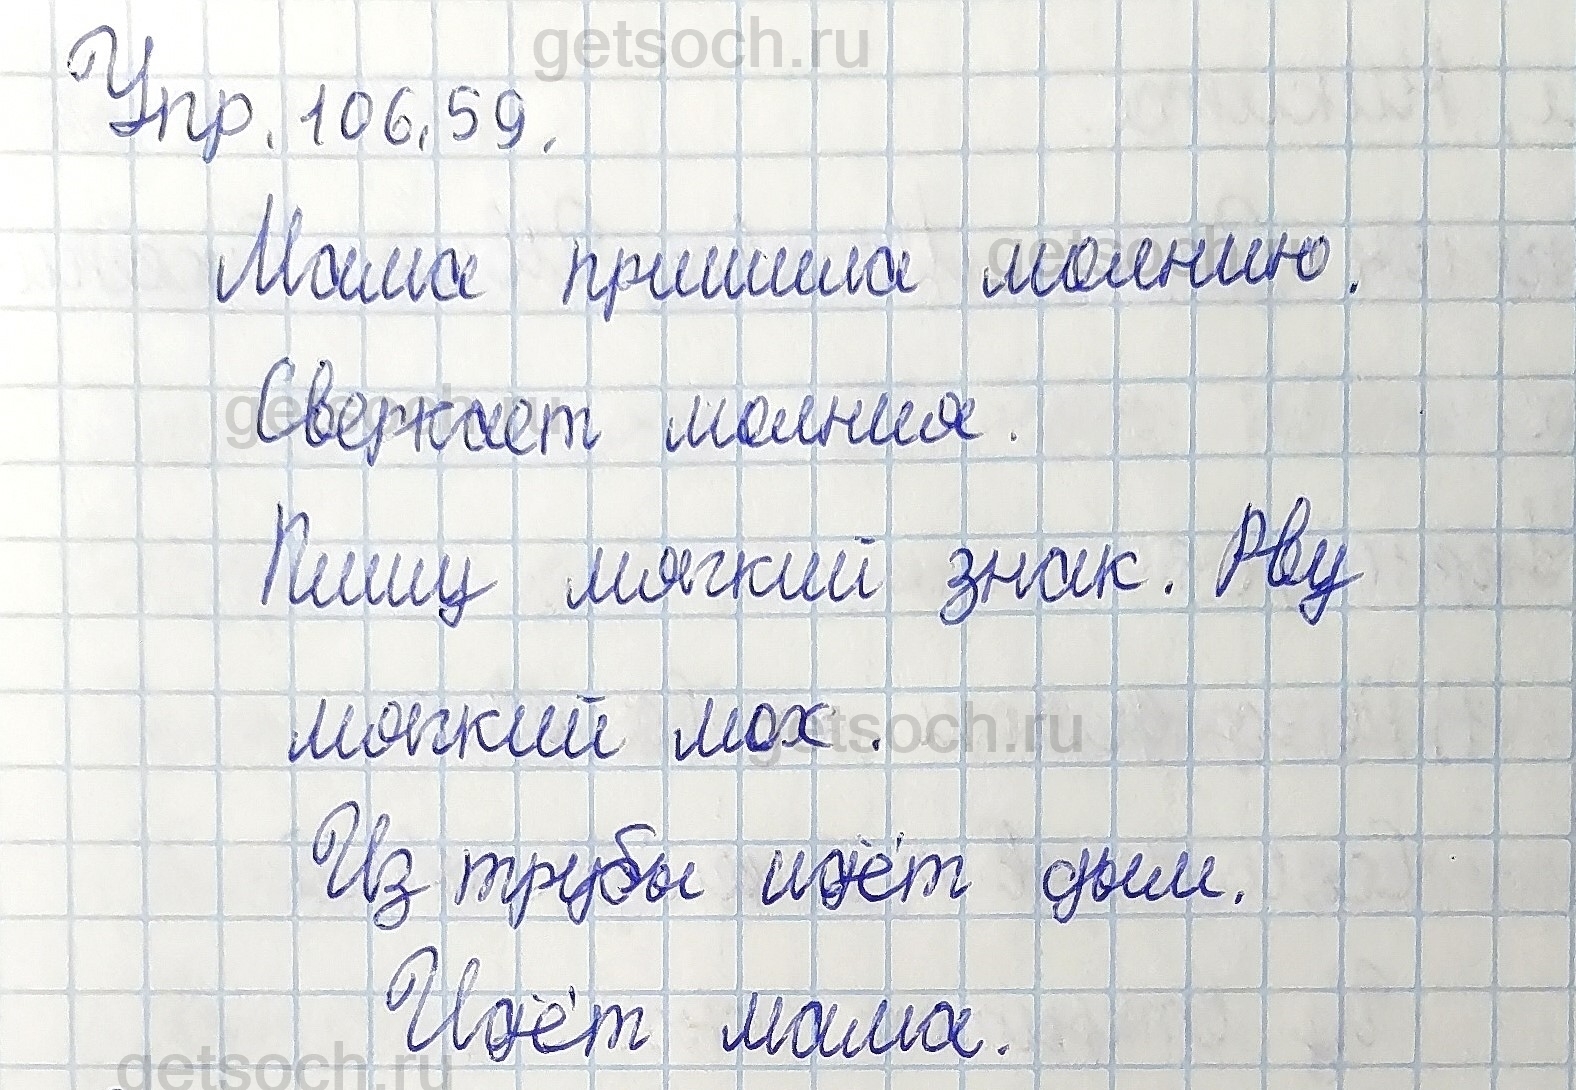 getsoch.ru
Упр. 106. 59.
Мама пришила молнию.
getsoch.ru
Сверкает молния.
getsoch.ru
Пишу мягкий знак. Рву
мягкий мох.
getsoch.ru
Из трубы идёт дым.
Идёт мама.
getsoch.ru